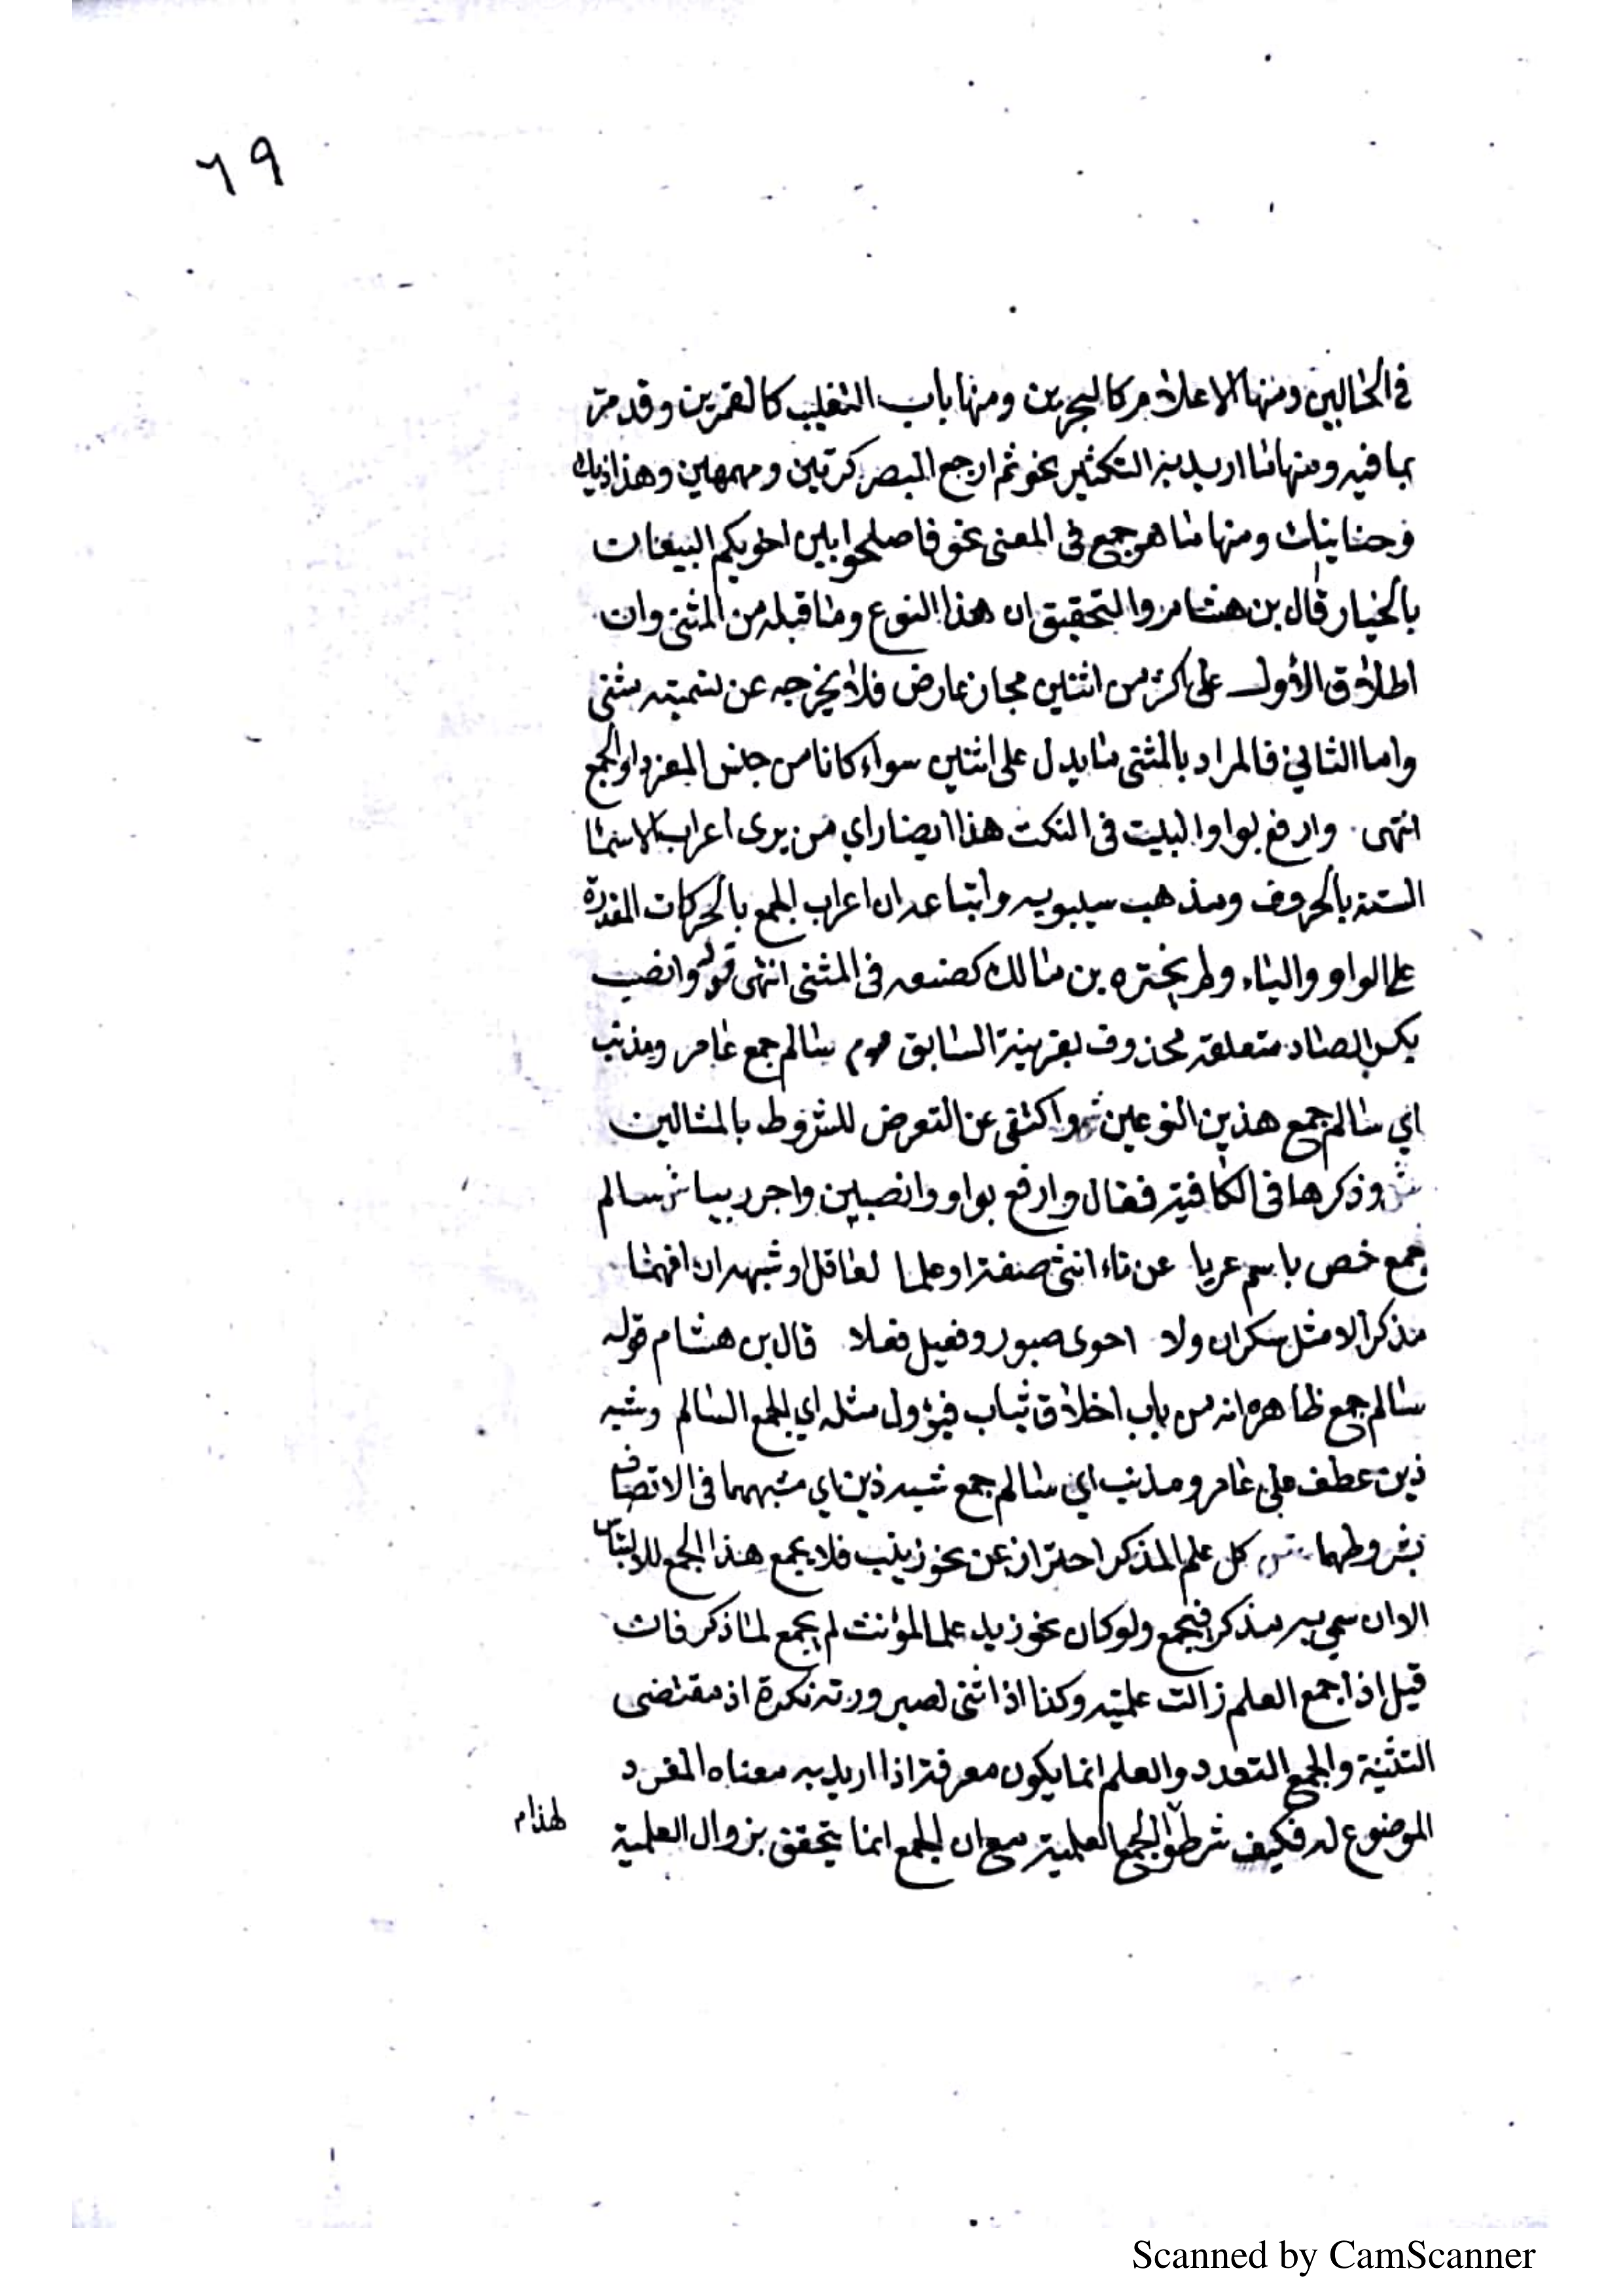 ٦٩
في الحالين ومنها الاعلام كالبحرين ومنها باب التغليب كالقمرين وقد مر
بما فيه ومنها ما اريد به التكثير نحو ثم ارجع البصر كرتين ومهمهين وهذاذيك
وحنانيك ومنها ما هو جمع في المعنى نحو فاصلحوا بين اخويكم البيعان
بالخيار قال بن هشام والتحقيق ان هذا النوع وما قبله من المثنى وان
اطلاق الأول على اكثر من اثنين مجاز عارض فلا يخرجه عن تسميته مثنى
واما الثاني فالمراد بالمثنى ما يدل على اثنين سواء كانا من جنس المفرد او الجمع
انتهى وارفع بواو البيت في النكت هذا ايضا راي من يرى اعراب الاسما
الستة بالحروف ومذهب سيبويه واتباعه ان اعراب الجمع بالحركات المقدرة
على الواو والياء ولم يختره بن مالك كصنعه في المثنى انتهى قوله وانصب
بكسر الصاد متعلقه محذوف بقرينة السابق سالم جمع عامر ومذنب
اي سالم جمع هذين النوعين واكتفى عن التعرض للشروط بالمثالين
وذكرها في الكافية فقال وارفع بواو وانصبن واجرر بيا سالم
جمع خص باسم عريا عن تاء انثى صفة او علما لعاقل او شبهه ان افهما
مذكرا لا مثل سكران ولا احوى صبور وفعيل فعلا قال بن هشام قوله
سالم جمع ظاهره انه من باب اخلاق ثياب فيؤول مثله اي الجمع السالم وشبه
ذين عطف على عامر ومذنب اي سالم جمع شبه ذين اي مشبههما في الاتصاف
بشروطهما كل علم المذكر احتراز عن نحو زينب فلا يجمع هذا الجمع للالتباس
الا ان سمي به مذكر فيجمع ولو كان نحو زيد علما لمؤنث لم يجمع لما ذكر فان
قيل اذا جمع العلم زالت علميته وكذا اذا ثنى لصيرورته نكرة اذ مقتضى
التثنية والجمع التعدد والعلم انما يكون معرفة اذا اريد به معناه المفرد
الموضوع له فكيف شرطوا لجمع العلمية مع ان الجمع انما يتحقق بزوال العلمية
لهذا
Scanned by CamScanner